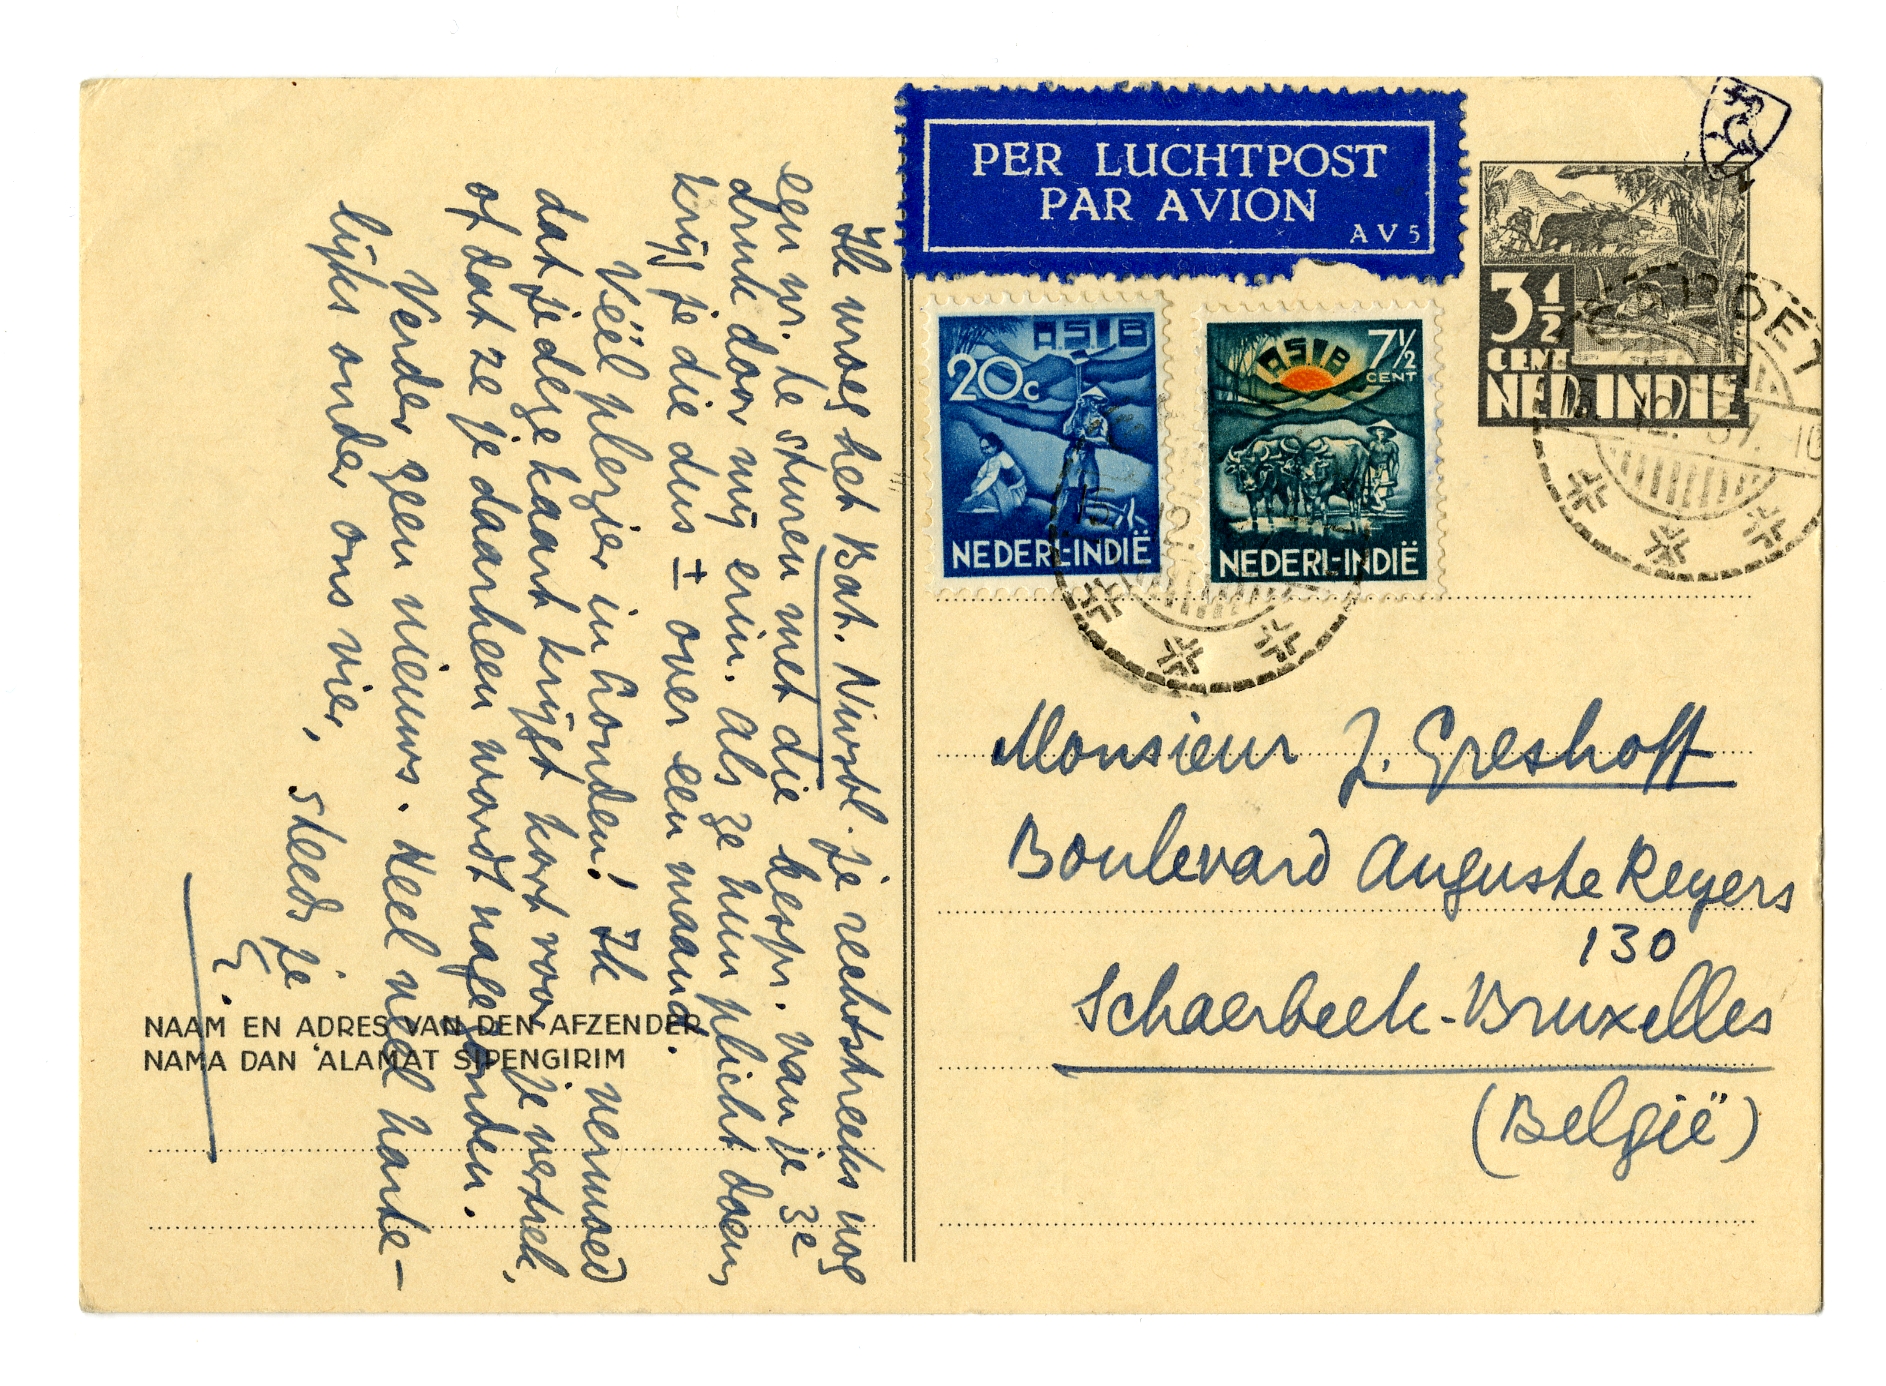 Ik vroeg het Bat. Nwsbl. je rechtstreeks nog
een nr. te sturen met die bespr. van je 3e
druk door mij erin. Als ze hun plicht doen,
krijg je die dus ± over een maand.
Véél plezier in Londen! Ik vermoed
dat je deze kaart krijgt kort voor je vertrek,
of dat ze je daarheen wordt nagezonden.
Verder geen nieuws. Heel veel harte-
lijks onder ons vier, steeds je
E.
NAAM EN ADRES VAN DEN AFZENDER
NAMA DAN 'ALAMAT SIPENGIRIM
PER LUCHTPOST
PAR AVION
AV5
ASIB
20c
NEDERL-INDIË
ASIB
7½
CENT
NEDERL-INDIË
3½
CENT
NED. INDIE
12.37.
Monsieur J. Greshoff
Boulevard Auguste Reyers
130
Schaerbeek-Bruxelles
(België)